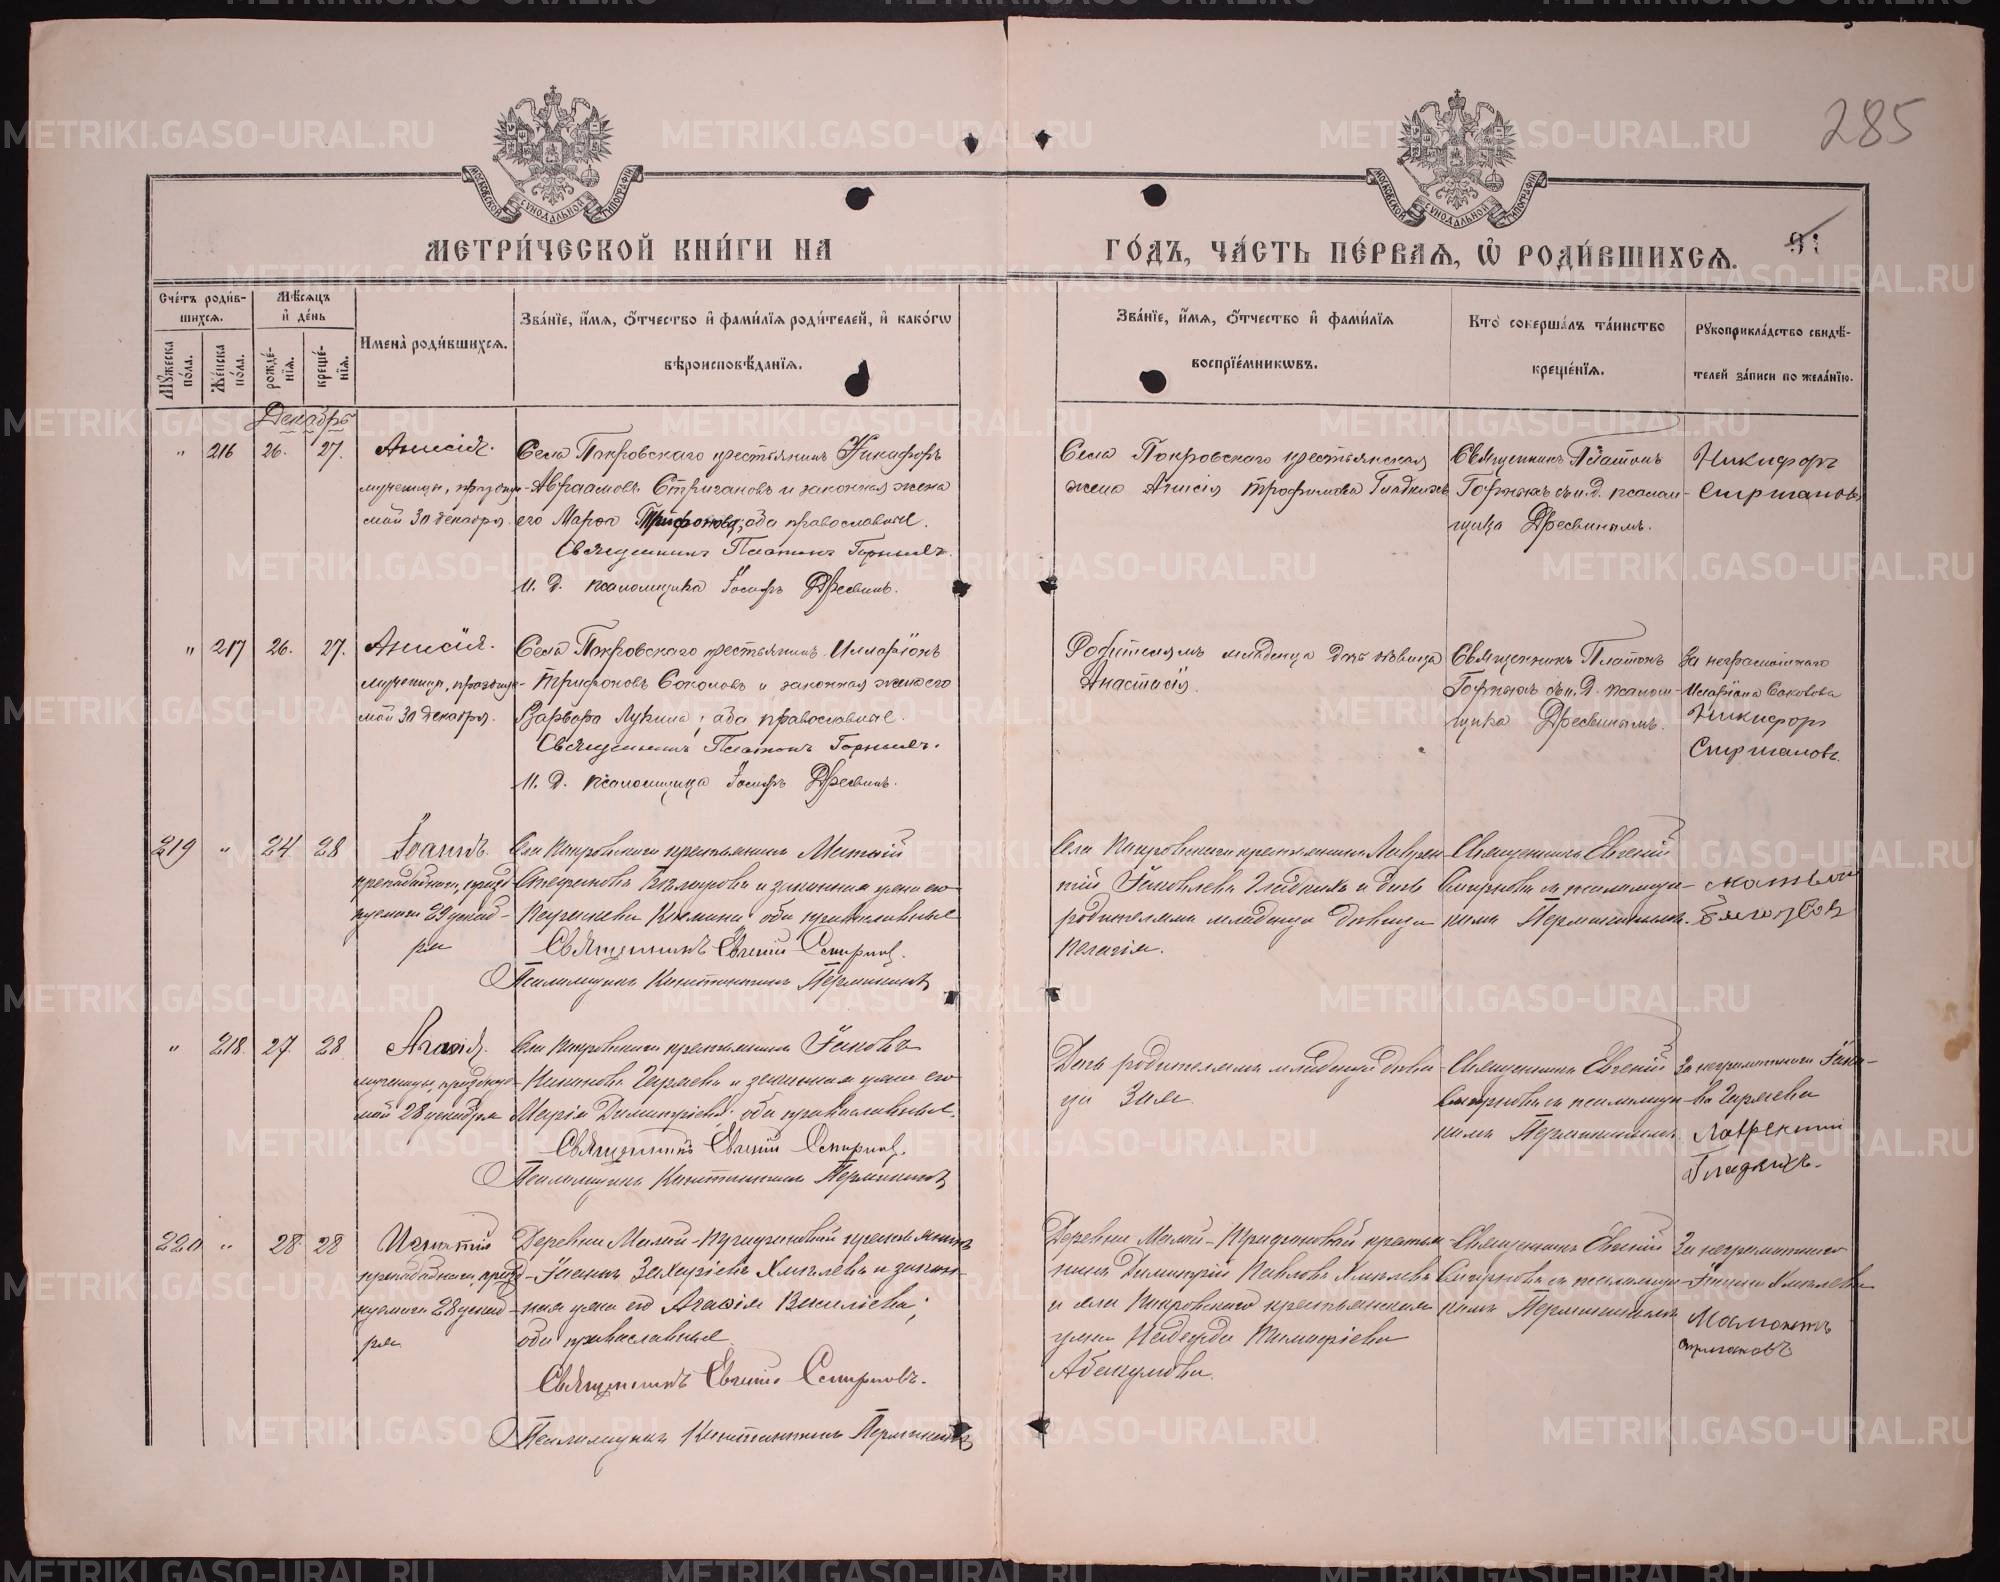 285
МОСКОВСКОЙ СѴНОДАЛЬНОЙ ТИПОГРАФІИ
МОСКОВСКОЙ СѴНОДАЛЬНОЙ ТИПОГРАФІИ
МЕТРИ́ЧЕСКОЙ КНИ́ГИ НА
ГО́ДЪ, ЧА́СТЬ ПЕ́РВАЯ, Ѡ҆ РОДИ́ВШИХСЯ.
Сче́тъ роди́в-
шихся.
Мѣ́сяцъ
и҆ де́нь
Мꙋ́жеска по́ла.
Же́нска по́ла.
рожде́-нїя.
креще́-нїя.
Имена̀ роди́вшихся.
Зва́нїе, и҆́мя, ѻ҆́тчество и҆ фами́лїя роди́телей, и҆ како́гѡ
вѣроисповѣ́данїя.
Зва́нїе, и҆́мя, ѻ҆́тчество и҆ фами́лїя
воспрїе́мникѡвъ.
Кто̀ соверша́лъ та́инство
креще́нїя.
Рꙋкоприкла́дство свидѣ́-
телей за́писи по жела́нїю.
Декабрь
" 216 26. 27. Анисія.
мученицы, праздну-
мой 30 декабря.
Села Покровскаго крестьянинъ Никифоръ
Авраамовъ Стригановъ и законная жена
его Марѳа Трифонова; оба православные.
Священникъ Платонъ Горныхъ.
И. д. псаломщика Іосифъ Дресвинъ.
Села Покровскаго крестьянская
жена Анисія Трофимова Гладкихъ
Священникъ Платонъ
Горныхъ съ и. д. псалом-
щика Дресвинымъ.
Никифоръ
Стригановъ
" 217 26. 27. Анисія.
мученицы, праздну-
мой 30 декабря.
Села Покровскаго крестьянинъ Илларіонъ
Трифоновъ Соколовъ и законная жена его
Варвара Лукина; оба православные.
Священникъ Платонъ Горныхъ.
И. д. псаломщика Іосифъ Дресвинъ.
Родителямъ младенца дочь дѣвица
Анастасія.
Священникъ Платонъ
Горныхъ съ и. д. псалом-
щика Дресвинымъ.
За неграмотнаго
Никифоръ
Стригановъ.
219 " 24 28 Іоаннъ.
преподобнаго, празд-
нуемаго 29 декаб-
ря
Села Покровскаго крестьянинъ Матѳій
Стефановъ и законная жена его
Космина: оба православные
Священникъ Евгеній Смирнов.
Псаломщикъ Константинъ Пермикинъ
Села Покровскаго крестьянинъ Лаврен-
тій Іаковлевъ Гладкихъ и дочь
родителямъ младенца дѣвица
Пелагія.
Священникъ Евгеній
Смирновъ съ псаломщи-
комъ Пермикинымъ.
" 218. 27. 28. Агаѳія.
мученицы, праздну-
мой 28 декабря
Села Покровскаго крестьянинъ Іаковъ
и законная жена его
Марія Димитріева: оба православные.
Священникъ Евгеній Смирнов.
Псаломщикъ Константинъ Пермикинъ
Дочь родителямъ младенца дѣви-
ца Зоя.
Священникъ Евгеній
Смирновъ съ псаломщи-
комъ Пермикинымъ.
За неграмотнаго Іако-
ва
Лаврентій
Гладкихъ.
220 " 28 28 Игнатій
преподобнаго, празд-
нуемаго 28 декаб-
ря
Іоаннъ Захаріевъ Хмѣлевъ и закон-
ная жена его Агаѳія Василіева;
оба православные
Священникъ Евгеній Смирновъ.
Псаломщикъ Константинъ Пермикинъ
нинъ Димитрій Павловъ Хмѣлевъ
и села Покровскаго крестьянская
жена Надежда Тимоѳіева
Абакумова.
Священникъ Евгеній
Смирновъ съ псаломщи-
комъ Пермикинымъ
За неграмотнаго
Іоанна Хмѣлева
Мамонтъ
Стригановъ